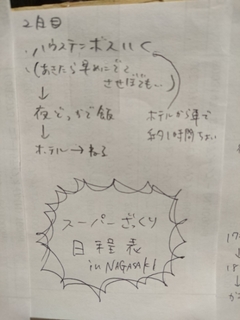 2日目
・ハウステンボスいく
(あきたら早めにでて、
させぼでも〜)
↓
夜どっかで飯
↓
ホテル→ねる
ホテルから車で
約1時間ちょい
スーパーざっくり
日程表
in NAGASAKI